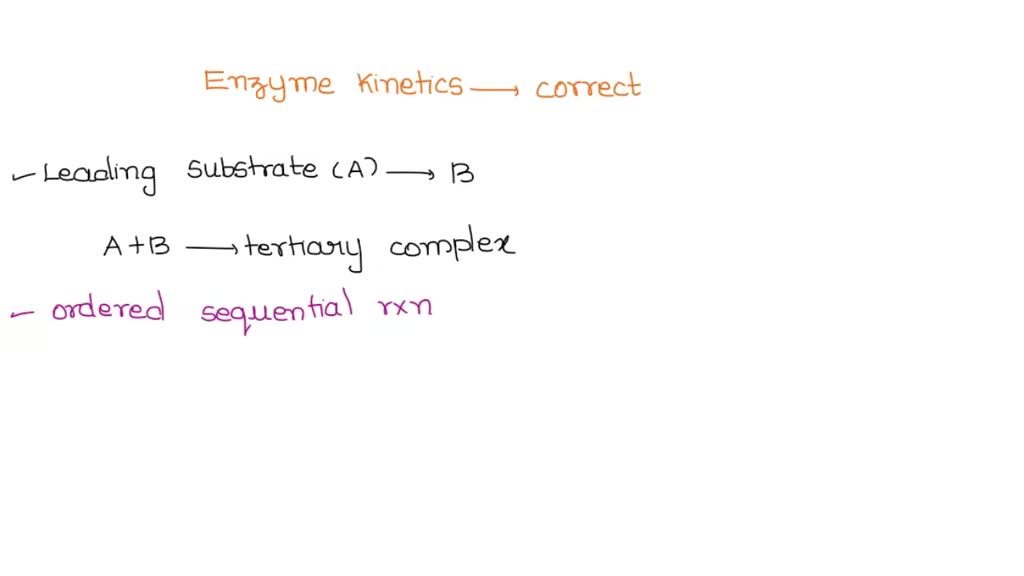 Enzyme kinetics → correct
✓ Leading substrate (A) → B
A+B → tertiary complex
✓ ordered sequential rxn